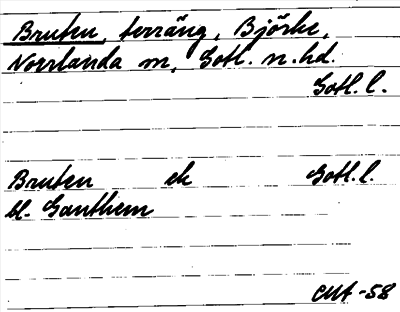 Bruten, terräng, Björke,
Norrlanda m, Gotl. n. hd.
Gotl. l.
Bruten ek Gotl. l.
bl. Ganthem
-58